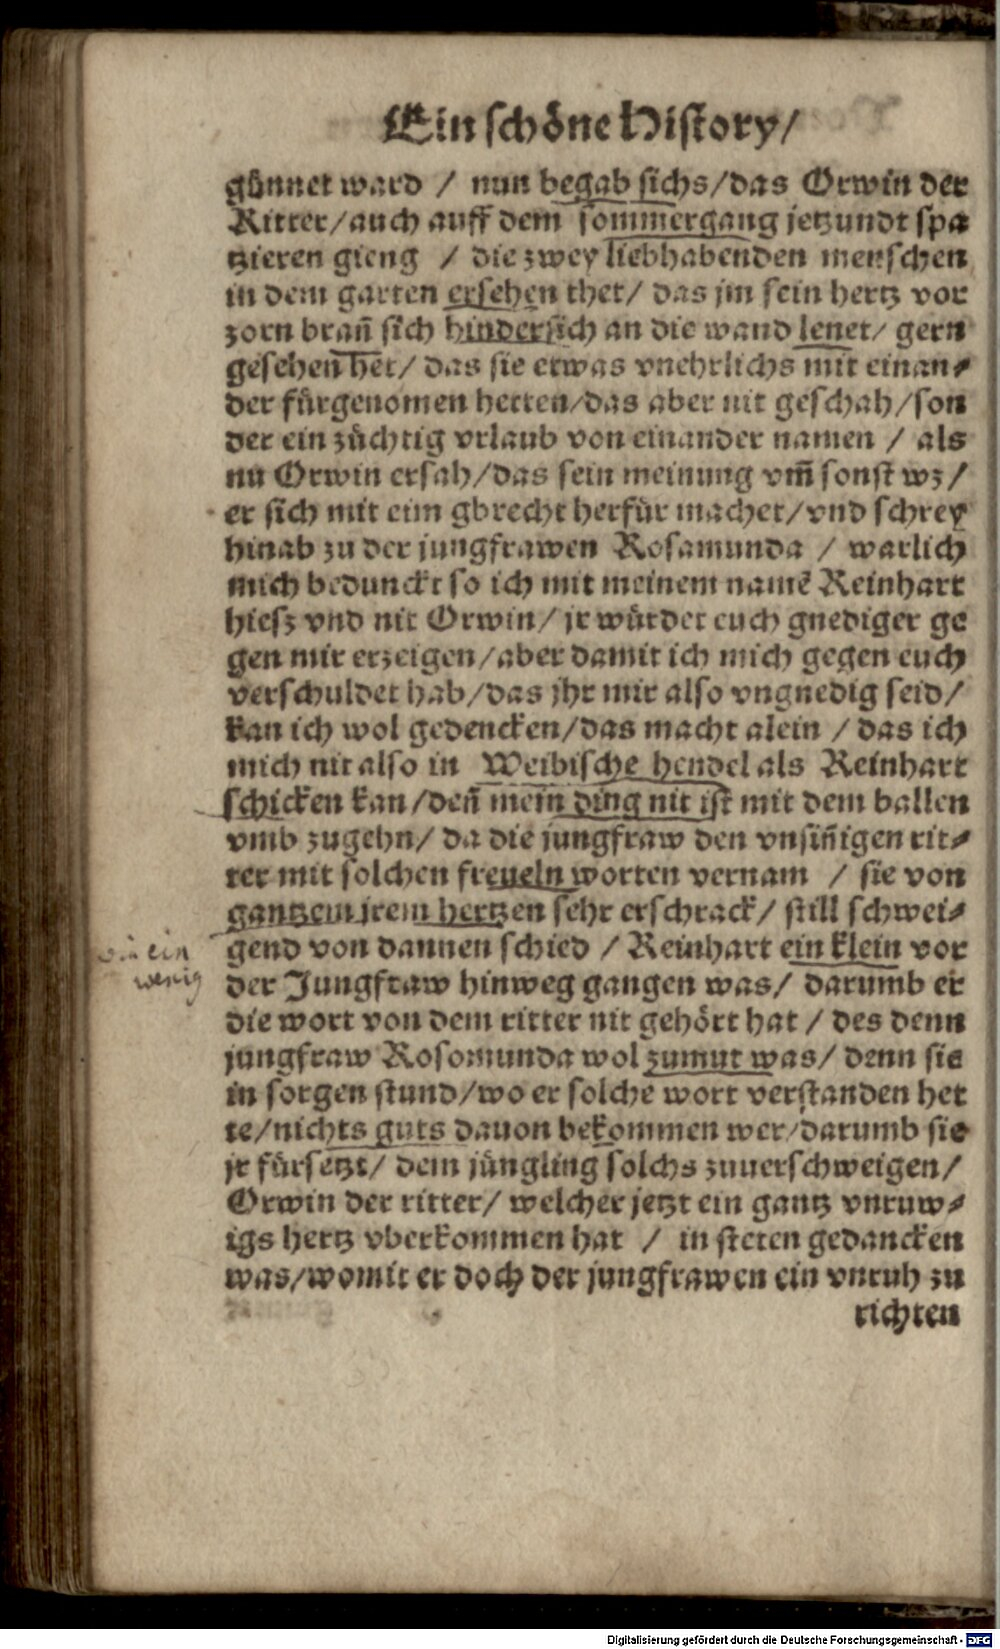 Ein schöne History/
günnet ward / nun begab sichs/das Orwin der
Ritter/auch auff dem sommergang jetzundt spa
tzieren gieng / die zwey liebhabenden menschen
in dem garten ersehen thet/ das jm sein hertz vor
zorn brañ sich hindersich an die wand lenet/ gern
gesehen het/ das sie etwas vnehrlichs mit einan⸗
der fürgenomen hetten/das aber nit geschah/son
der ein züchtig vrlaub von einander namen / als
nu Orwin ersah/das sein meinung vm̄ sonst wz/
er sich mit eim gbrecht herfür machet/vnd schrey
hinab zu der jungfrawen Rosamunda / warlich
mich bedunckt so ich mit meinem namē Reinhart
hiesz vnd nit Orwin/ jr würdet euch gnediger ge
gen mir erzeigen/aber damit ich mich gegen euch
verschuldet hab/das jhr mir also vngnedig seid/
kan ich wol gedencken/das macht alein / das ich
mich nit also in Weibische hendel als Reinhart
schicken kan/deñ mein ding nit ist mit dem ballen
vmb zugehn/ da die jungfraw den vnsiñigen rit⸗
ter mit solchen freueln worten vernam / sie von
gantzem jrem hertzen sehr erschrack/ still schwei⸗
gend von dannen schied / Reinhart ein klein vor
ein
wenig
der Jungfraw hinweg gangen was/ darumb er
die wort von dem ritter nit gehört hat / des denn
jungfraw Rosomunda wol zumut was/ denn sie
in sorgen stund/wo er solche wort verstanden het
te/nichts guts dauon bekommen wer/darumb sie
jr fürsetzt/ dem jüngling solchs zuuerschweigen/
Orwin der ritter/ welcher jetzt ein gantz vnruw⸗
igs hertz vberkommen hat / in steten gedancken
was/womit er doch der jungfrawen ein vnruh zu
richten
Digitalisierung gefördert durch die Deutsche Forschungsgemeinschaft - DFG